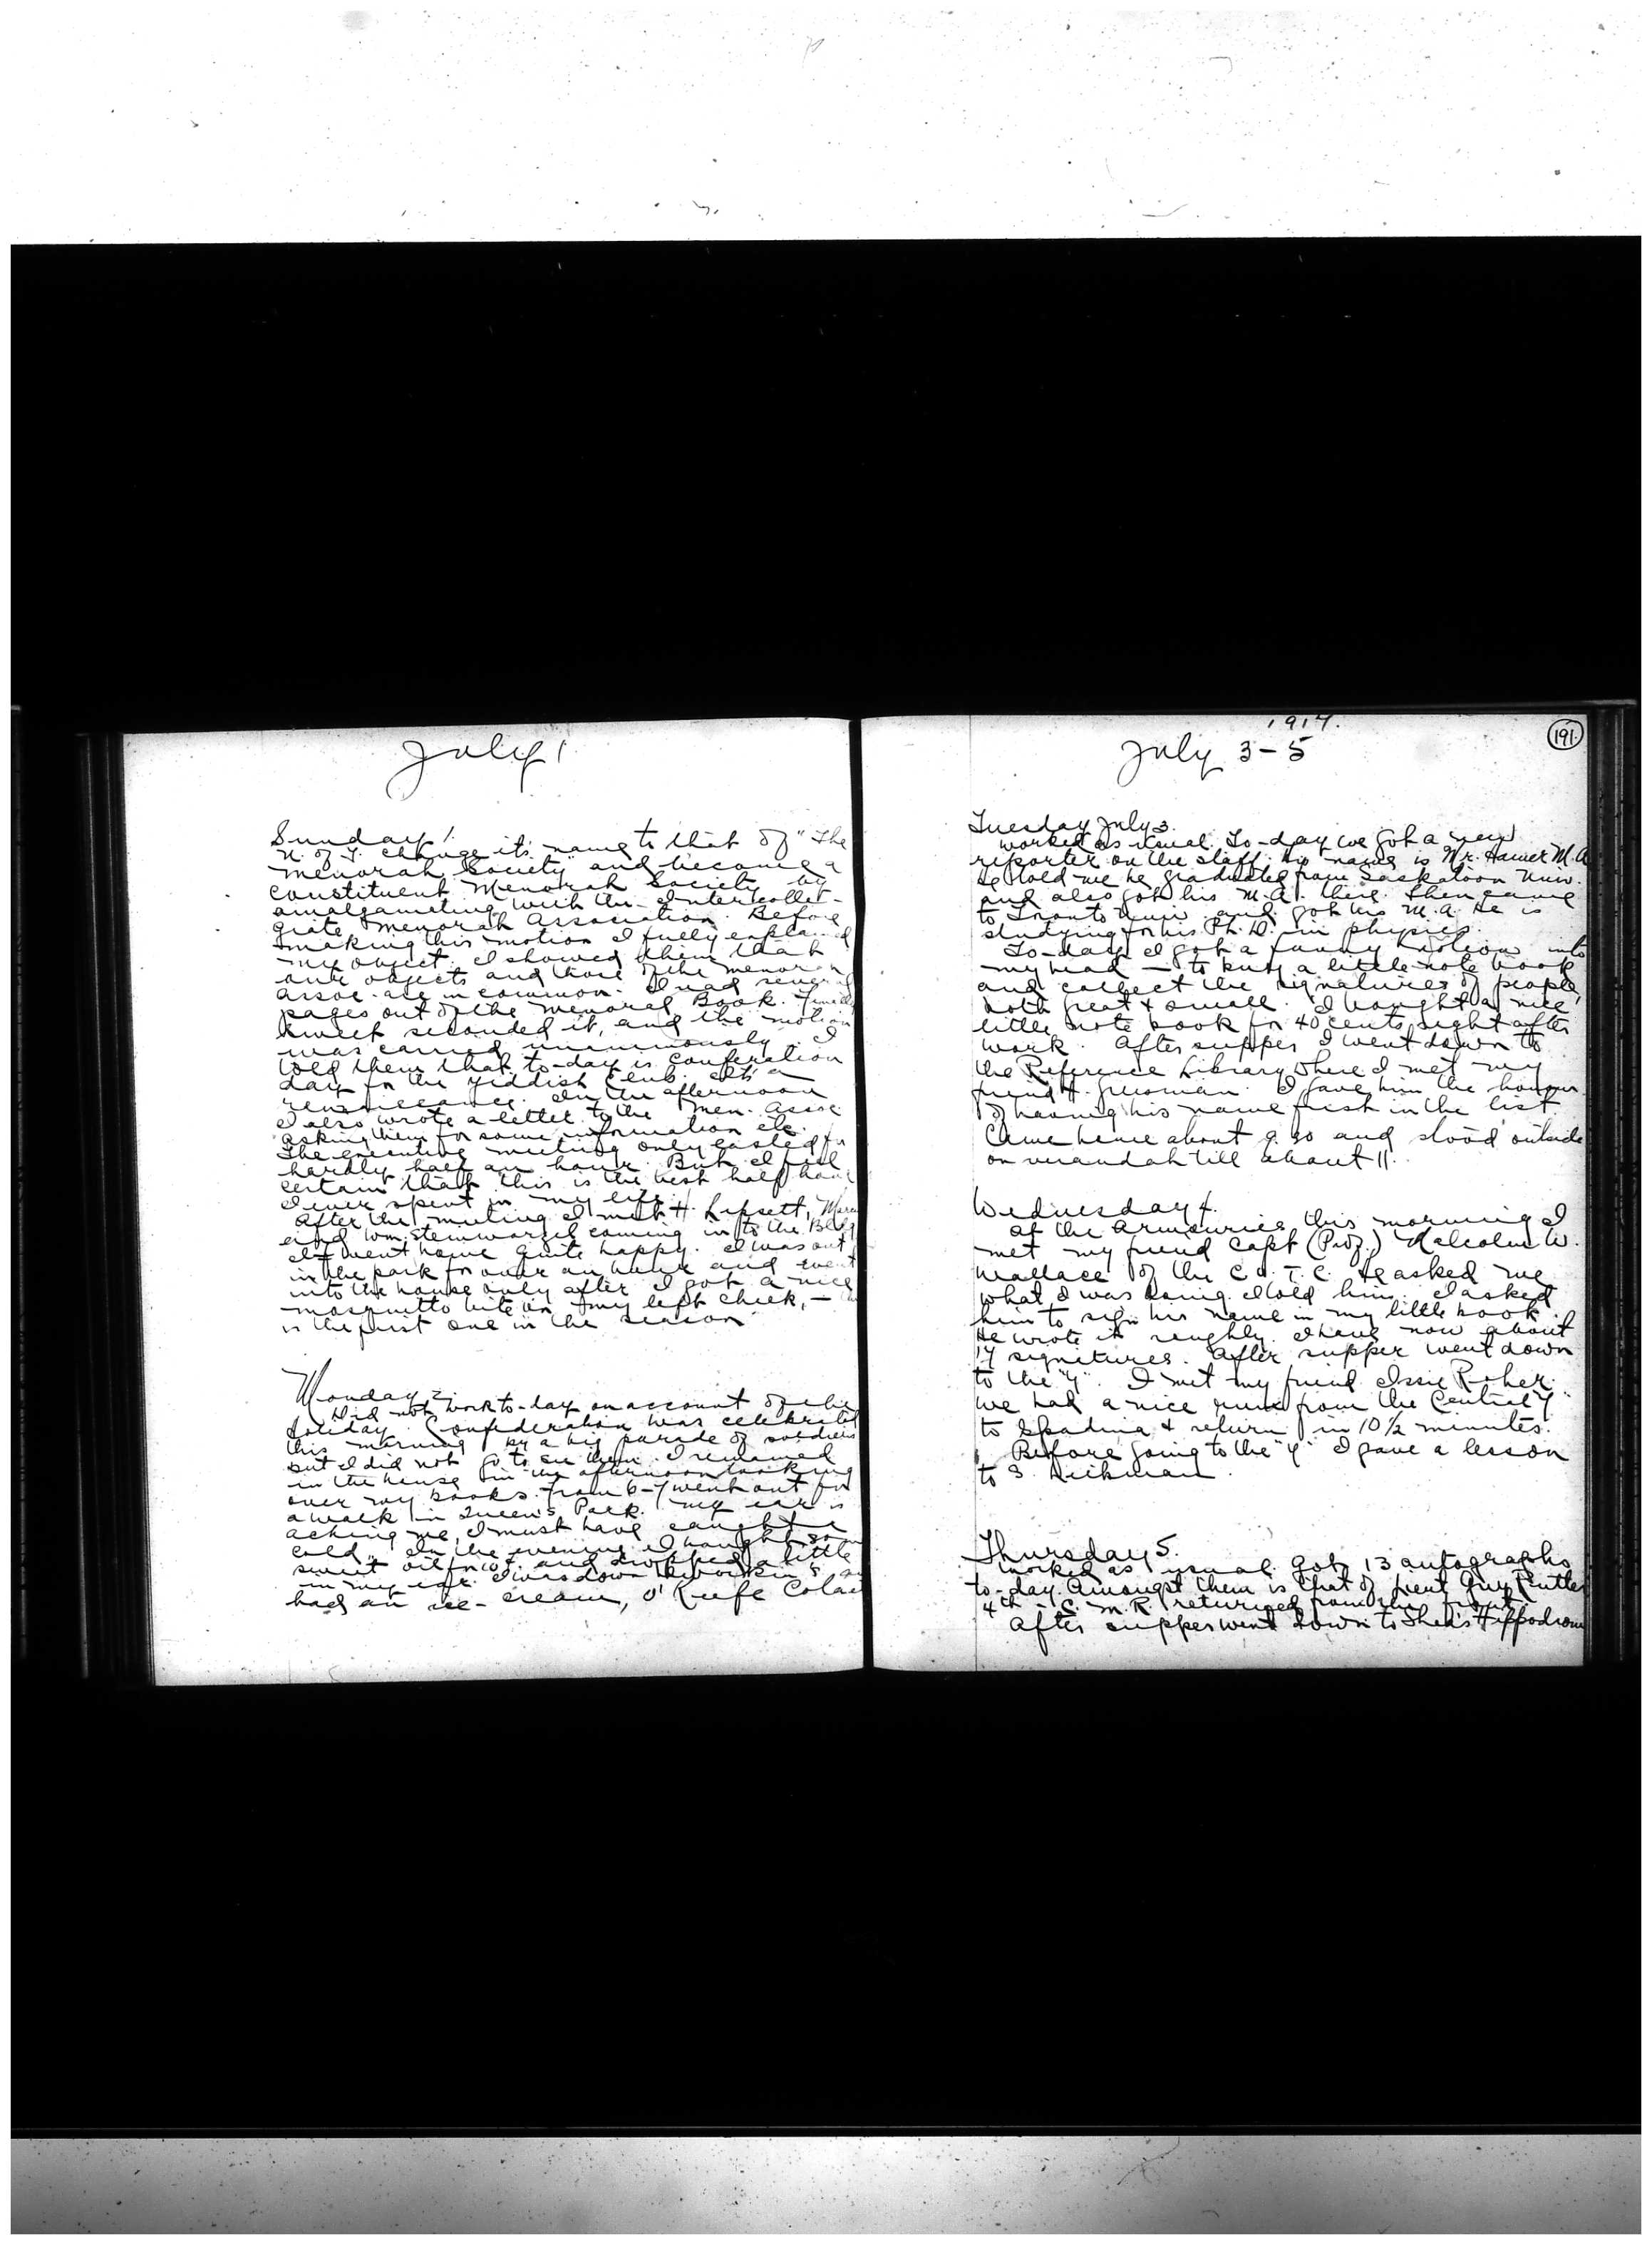 July 1
Sunday 1.
U. of T. change its name to that of "The
Menorah Society" and become a
constituent Menorah Society by
amalgamating with the Intercolle-
giate Menorah Association. Before
making this motion I fully explained
my object. I showed them that
our objects and those of the Menorah
Assoc. are in common. I read several
pages out of the Menorah Book.
Sweet seconded it, and the motion
was carried unanimously. I
told them that to-day is conferation
day for the Yiddish Club. It's a
renaissance. In the afternoon
I also wrote a letter to the Men. Assoc.
asking them for some information etc.
The executive meeting only lasted for
hardly half an hour. But I feel
certain that this is the best half hour
I ever spent in my life.
After the meeting I met H. Lipsett,
and Wm. Steinwarzel coming in to the Bldg
I went home quite happy. I was out
in the park for over an hour and went
into the house only after I got a nice
mosquitto bite on my left cheek, —
is the first one in the season
Monday 2.
Did not work to-day on account of the
holiday. Confederation was celebrated
this morning by a big parade of soldiers
but I did not go to see them. I remained
in the house in the afternoon looking
over my books. From 6-7 went out for
a walk in Queen's Park. My ear is
aching me, I must have caught a
cold. In the evening I bought some
sweet oil for 10¢ and dropped a little
in my ear. I was down
had an ice-cream, O'Keefe Cola
1917.
191
July 3-5
Tuesday July 3.
Worked as usual. To-day we got a new
reporter on the staff. His name is Mr. Hamer M.A.
He told me he graduated from Saskatoon Univ.
and also got his M.A. there. Then came
to Tronto Univ. and got his M.A. He is
studying for his Ph.D. in physics.
To-day I got a funny notion into
my head — to buy a little note book
and collect the signatures of people,
both great & small. I bought a nice
little note book for 40 cents right after
work. After supper I went down to
the Reference Library where I met my
friend H. Gussman. I gave him the honour
of having his name first in the list.
Came home about 9.30 and stood outside
on verandah till about 11.
Wednesday 4.
At the Armouries this morning I
met my friend Capt (Prof.) Malcolm W.
Wallace of the C.O.T.C. He asked me
what I was doing. I told him. I asked
him to sign his name in my little book.
He wrote it roughly. I have now about
14 signitures. After supper went down
to the "Y". I met my friend Issie Roher.
We had a nice run from the Central "Y"
to Spadina & return in 10½ minutes.
Before going to the "Y" I gave a lesson
to S. Hickman.
Thursday 5.
Worked as usual. Got 13 autographs
to-day. Amongst them is that of Lieut Guy Rutter
4th C.M.R. returned from the front.
After supper went down to Shea's Hippodrome